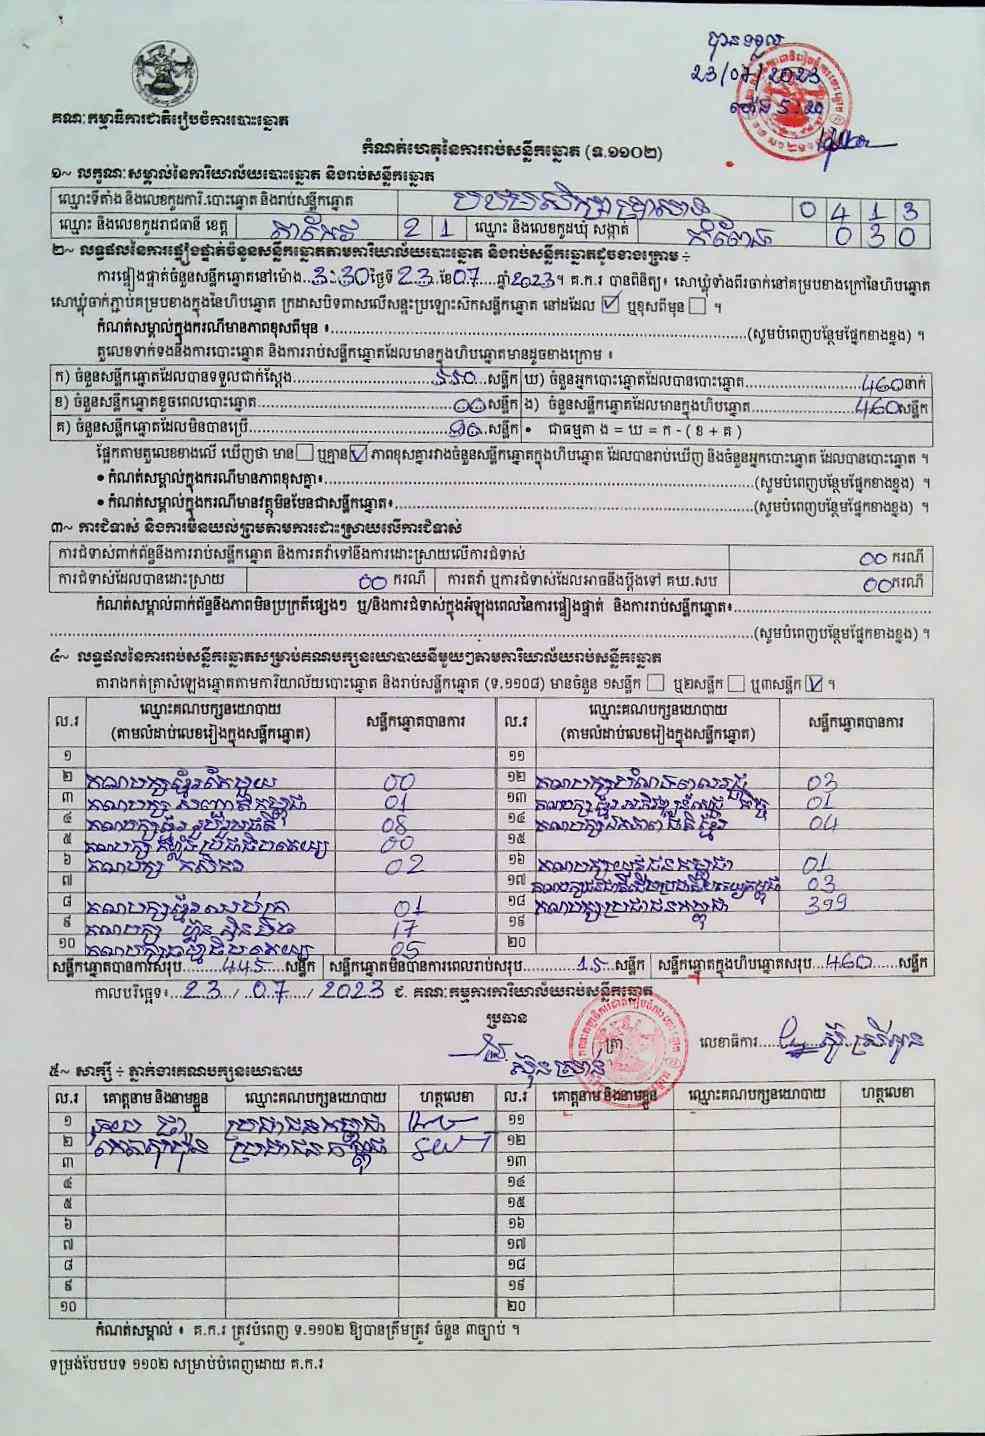 បានទទួល
23/07/2023
គណៈកម្មាធិការជាតិរៀបចំការបោះឆ្នោត
កំណត់ហេតុនៃការរាប់សន្លឹកឆ្នោត (ទ.១១០២)
១~ លក្ខណៈសម្គាល់នៃការិយាល័យបោះឆ្នោត និងរាប់សន្លឹកឆ្នោត
ឈ្មោះទីតាំង និងលេខកូដការិ.បោះឆ្នោត និងរាប់សន្លឹកឆ្នោត 0 4 1 3
ឈ្មោះ និងលេខកូដរាជធានី ខេត្ត តាកែវ 2 1 ឈ្មោះ និងលេខកូដឃុំ សង្កាត់ កំពែង 0 3 0
២~ លទ្ធផលនៃការផ្ទៀងផ្ទាត់ចំនួនសន្លឹកឆ្នោតតាមការិយាល័យបោះឆ្នោត និងរាប់សន្លឹកឆ្នោតដូចខាងក្រោម ៖
ការផ្ទៀងផ្ទាត់ចំនួនសន្លឹកឆ្នោតនៅម៉ោង..3:30ថ្ងៃទី23..ខែ07.....ឆ្នាំ2023។ គ.ក.រ បានពិនិត្យ៖ សោឃ្លុំទាំងពីរចាក់នៅគម្របខាងក្រៅនៃហិបឆ្នោត
សោឃ្លុំចាក់ភ្ជាប់គម្របខាងក្នុងនៃហិបឆ្នោត ក្រដាសបិទពាសលើសន្ទះប្រឡោះស៊កសន្លឹកឆ្នោត នៅដដែល ☑ ឬខុសពីមុន ☐ ។
កំណត់សម្គាល់ក្នុងករណីមានភាពខុសពីមុន ៖......(សូមបំពេញបន្ថែមផ្នែកខាងខ្នង) ។
តួលេខទាក់ទងនឹងការបោះឆ្នោត និងការរាប់សន្លឹកឆ្នោតដែលមានក្នុងហិបឆ្នោតមានដូចខាងក្រោម ៖
ក) ចំនួនសន្លឹកឆ្នោតដែលបានទទួលជាក់ស្តែង......550...សន្លឹក ឃ) ចំនួនអ្នកបោះឆ្នោតដែលបានបោះឆ្នោត......460នាក់
ខ) ចំនួនសន្លឹកឆ្នោតខូចពេលបោះឆ្នោត......00សន្លឹក ង) ចំនួនសន្លឹកឆ្នោតដែលមានក្នុងហិបឆ្នោត......460សន្លឹក
គ) ចំនួនសន្លឹកឆ្នោតដែលមិនបានប្រើ......90...សន្លឹក • ជាធម្មតា ង = ឃ = ក - ( ខ + គ )
ផ្អែកតាមតួលេខខាងលើ ឃើញថា មាន ☐ ឬគ្មាន ☑ ភាពខុសគ្នារវាងចំនួនសន្លឹកឆ្នោតក្នុងហិបឆ្នោត ដែលបានរាប់ឃើញ និងចំនួនអ្នកបោះឆ្នោត ដែលបានបោះឆ្នោត ។
• កំណត់សម្គាល់ក្នុងករណីមានភាពខុសគ្នា៖......(សូមបំពេញបន្ថែមផ្នែកខាងខ្នង) ។
• កំណត់សម្គាល់ក្នុងករណីមានវត្ថុមិនមែនជាសន្លឹកឆ្នោត៖......(សូមបំពេញបន្ថែមផ្នែកខាងខ្នង) ។
៣~ ការជំទាស់ និងការមិនយល់ព្រមតាមការដោះស្រាយលើការជំទាស់
ការជំទាស់ពាក់ព័ន្ធនឹងការរាប់សន្លឹកឆ្នោត និងការតវ៉ាទៅនឹងការដោះស្រាយលើការជំទាស់ 00 ករណី
ការជំទាស់ដែលបានដោះស្រាយ 00 ករណី ការតវ៉ា ឬការជំទាស់ដែលអាចនឹងប្តឹងទៅ គឃ.សប 00ករណី
កំណត់សម្គាល់ពាក់ព័ន្ធនឹងភាពមិនប្រក្រតីផ្សេងៗ ឬ/និងការជំទាស់ក្នុងអំឡុងពេលនៃការផ្ទៀងផ្ទាត់ និងការរាប់សន្លឹកឆ្នោត៖......
......(សូមបំពេញបន្ថែមផ្នែកខាងខ្នង) ។
៤~ លទ្ធផលនៃការរាប់សន្លឹកឆ្នោតសម្រាប់គណបក្សនយោបាយនីមួយៗតាមការិយាល័យរាប់សន្លឹកឆ្នោត
តារាងកត់ត្រាសំឡេងឆ្នោតតាមការិយាល័យបោះឆ្នោត និងរាប់សន្លឹកឆ្នោត (ទ.១១០៨) មានចំនួន ១សន្លឹក ☐ ឬ២សន្លឹក ☐ ឬ៣សន្លឹក ☑ ។
ល.រ ឈ្មោះគណបក្សនយោបាយ (តាមលំដាប់លេខរៀងក្នុងសន្លឹកឆ្នោត) សន្លឹកឆ្នោតបានការ ល.រ ឈ្មោះគណបក្សនយោបាយ (តាមលំដាប់លេខរៀងក្នុងសន្លឹកឆ្នោត) សន្លឹកឆ្នោតបានការ
១ ១១
២ គណបក្សខ្មែរតែមួយ 00 ១២ 03
៣ គណបក្ស សញ្ជាតិកម្ពុជា 01 ១៣ គណបក្ស ខ្មែរ អភិវឌ្ឍន៍សេដ្ឋកិច្ច 01
៤ គណបក្សខ្មែរ រួបរួមជាតិ 08 ១៤ គណបក្សឯកភាពជាតិខ្មែរ 04
៥ គណបក្ស កម្លាំងប្រជាធិបតេយ្យ 00 ១៥
៦ គណបក្ស កសិករ 02 ១៦ គណបក្សយុវជនកម្ពុជា 01
៧ ១៧ គណបក្សជនជាតិដើមប្រជាធិបតេយ្យកម្ពុជា 03
៨ គណបក្សខ្មែរឈប់ក្រ 01 ១៨ គណបក្សប្រជាជនកម្ពុជា 399
៩ គណបក្ស ហ្វ៊ុនស៊ិនប៉ិច 17 ១៩
១០ គណបក្សធម្មាធិបតេយ្យ 05 ២០
សន្លឹកឆ្នោតបានការសរុប......445...សន្លឹក សន្លឹកឆ្នោតមិនបានការពេលរាប់សរុប......15...សន្លឹក សន្លឹកឆ្នោតក្នុងហិបឆ្នោតសរុប...460......សន្លឹក
កាលបរិច្ឆេទ៖...23.../..07..../2023 ជ. គណៈកម្មការការិយាល័យរាប់សន្លឹកឆ្នោត
ប្រធាន
ត្រា
លេខាធិការ......
៥~ សាក្សី ៖ ភ្នាក់ងារគណបក្សនយោបាយ
ល.រ គោត្តនាម និងនាមខ្លួន ឈ្មោះគណបក្សនយោបាយ ហត្ថលេខា ល.រ គោត្តនាម និងនាមខ្លួន ឈ្មោះគណបក្សនយោបាយ ហត្ថលេខា
១ ប្រជាជនកម្ពុជា ១១
២ ប្រជាជនកម្ពុជា ១២
៣ ១៣
៤ ១៤
៥ ១៥
៦ ១៦
៧ ១៧
៨ ១៨
៩ ១៩
១០ ២០
កំណត់សម្គាល់ ៖ គ.ក.រ ត្រូវបំពេញ ទ.១១០២ ឱ្យបានត្រឹមត្រូវ ចំនួន ៣ច្បាប់ ។
ទម្រង់បែបបទ ១១០២ សម្រាប់បំពេញដោយ គ.ក.រ